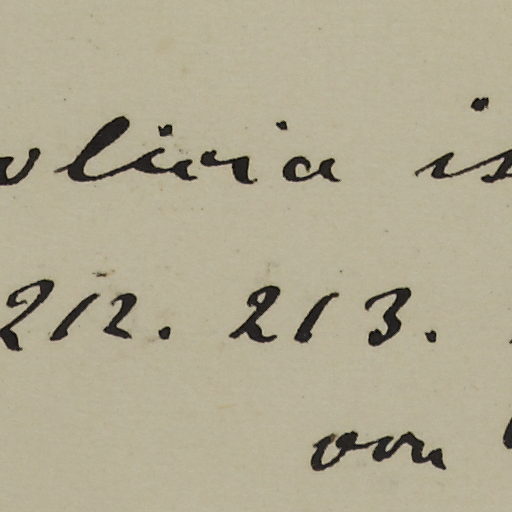 olivia is
212. 213.
von